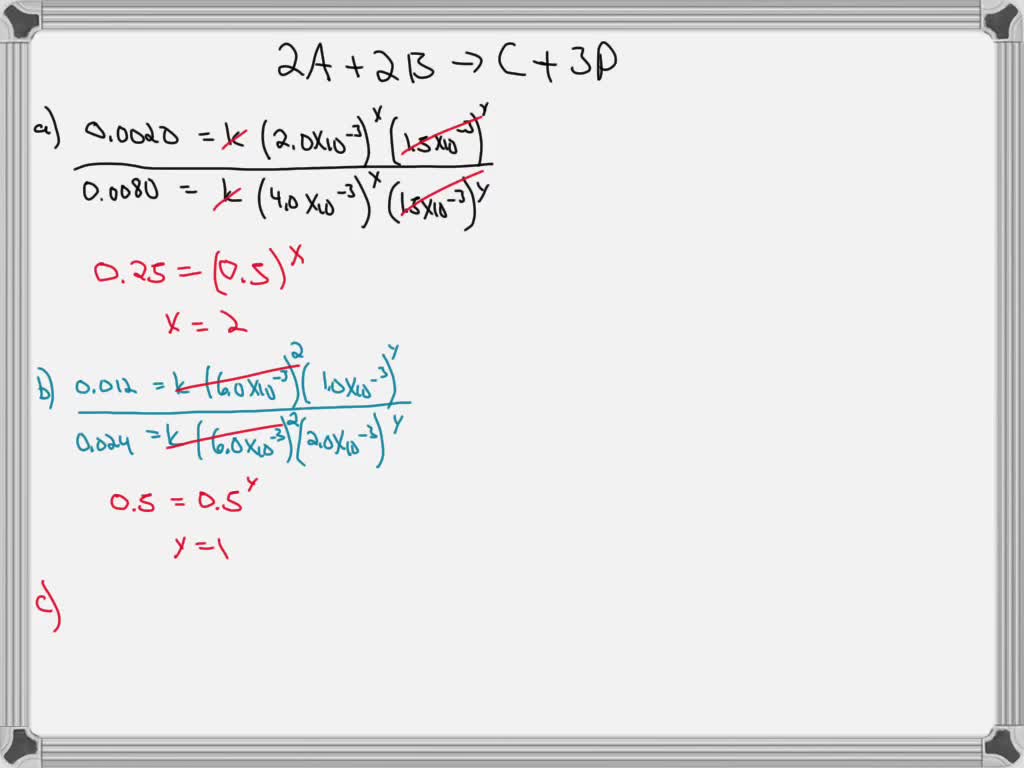 2A + 2B → C + 3D
a) 0.0020 = k (2.0x10⁻³)ˣ (1.5x10⁻³)ʸ
0.0080 = k (4.0x10⁻³)ˣ (1.5x10⁻³)ʸ
0.25 = (0.5)ˣ
x = 2
b) 0.012 = k (6.0x10⁻³)² (1.0x10⁻³)ʸ
0.024 = k (6.0x10⁻³)² (2.0x10⁻³)ʸ
0.5 = 0.5ʸ
y = 1
c)